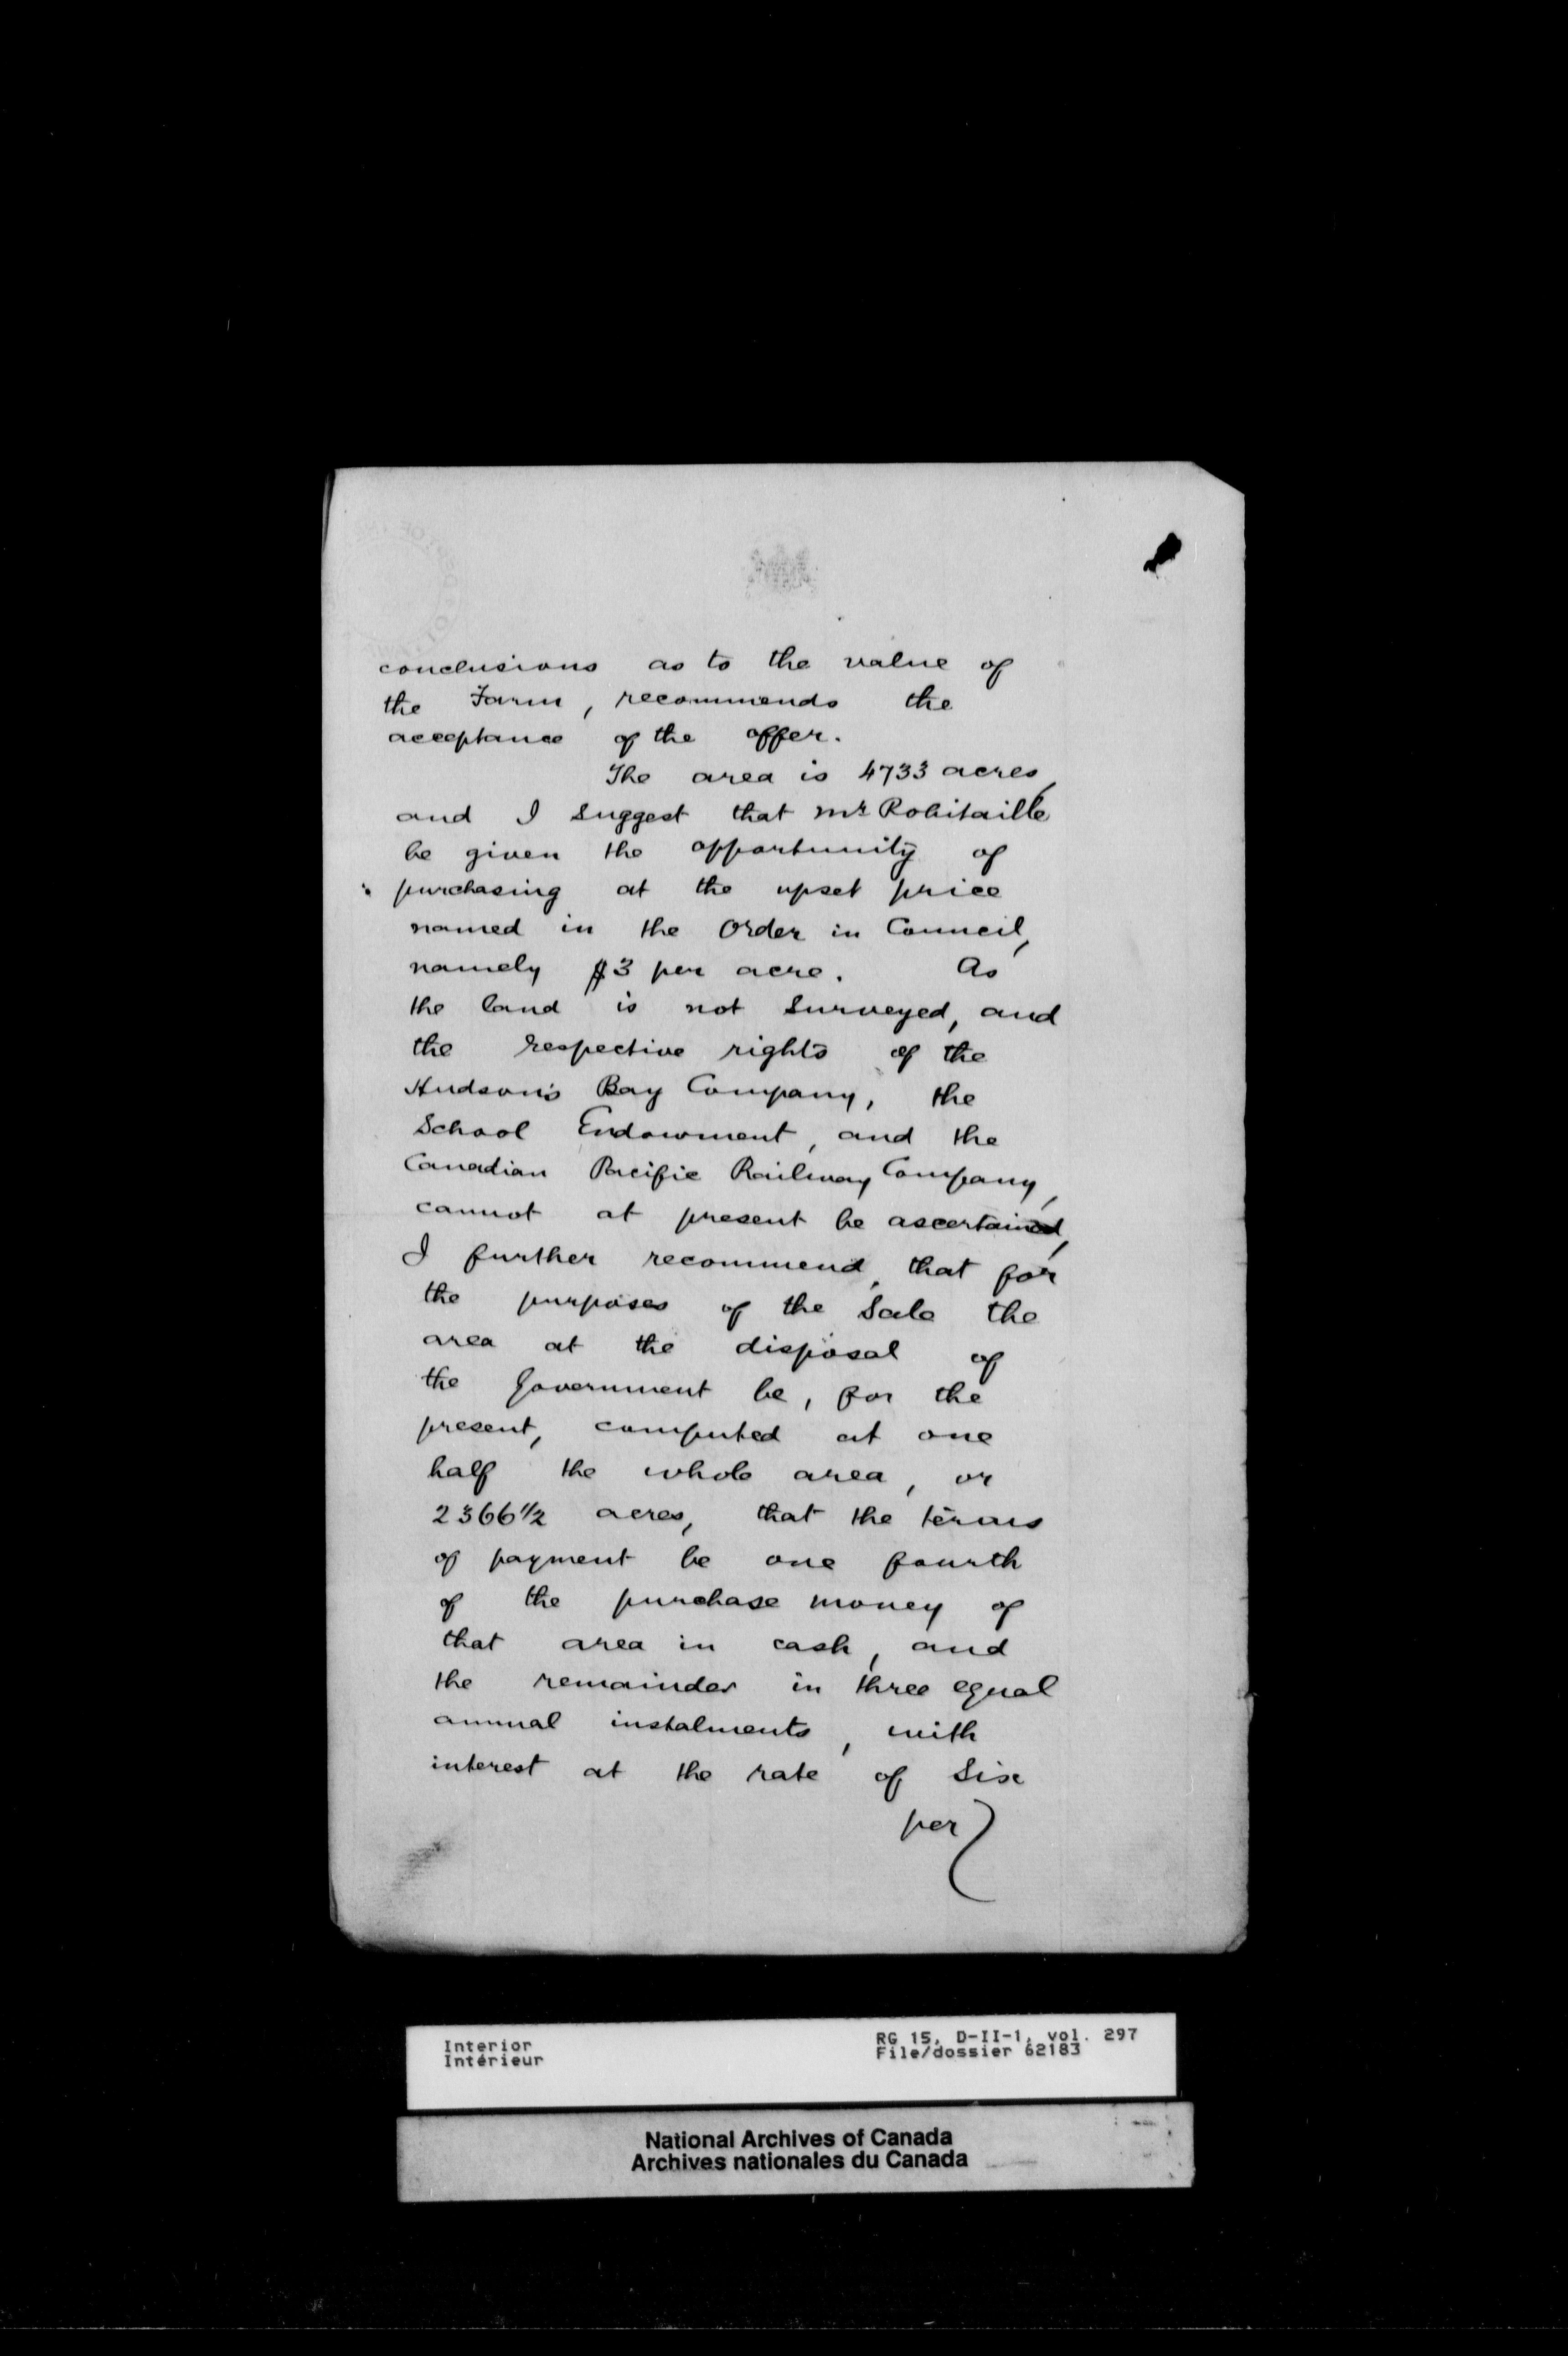 conclusions as to the value of
the Farm, recommends the
acceptance of the offer.
The area is 4733 acres,
and I suggest that Mr Robitaille
be given the opportunity of
purchasing at the upset price
named in the Order in Council,
namely $3 per acre. As
the land is not surveyed, and
the respective rights of the
Hudson's Bay Company, the
School Endowment, and the
Canadian Pacific Railway Company,
cannot at present be ascertained,
I further recommend, that for
the purposes of the Sale the
area at the disposal of
the Government be, for the
present, computed at one
half the whole area, or
2366 1/2 acres, that the terms
of payment be one fourth
of the purchase money of
that area in cash, and
the remainder in three equal
annual instalments, with
interest at the rate of six
per
Interior
Intérieur
RG 15, D-II-1, vol. 297
File/dossier 62183
National Archives of Canada
Archives nationales du Canada